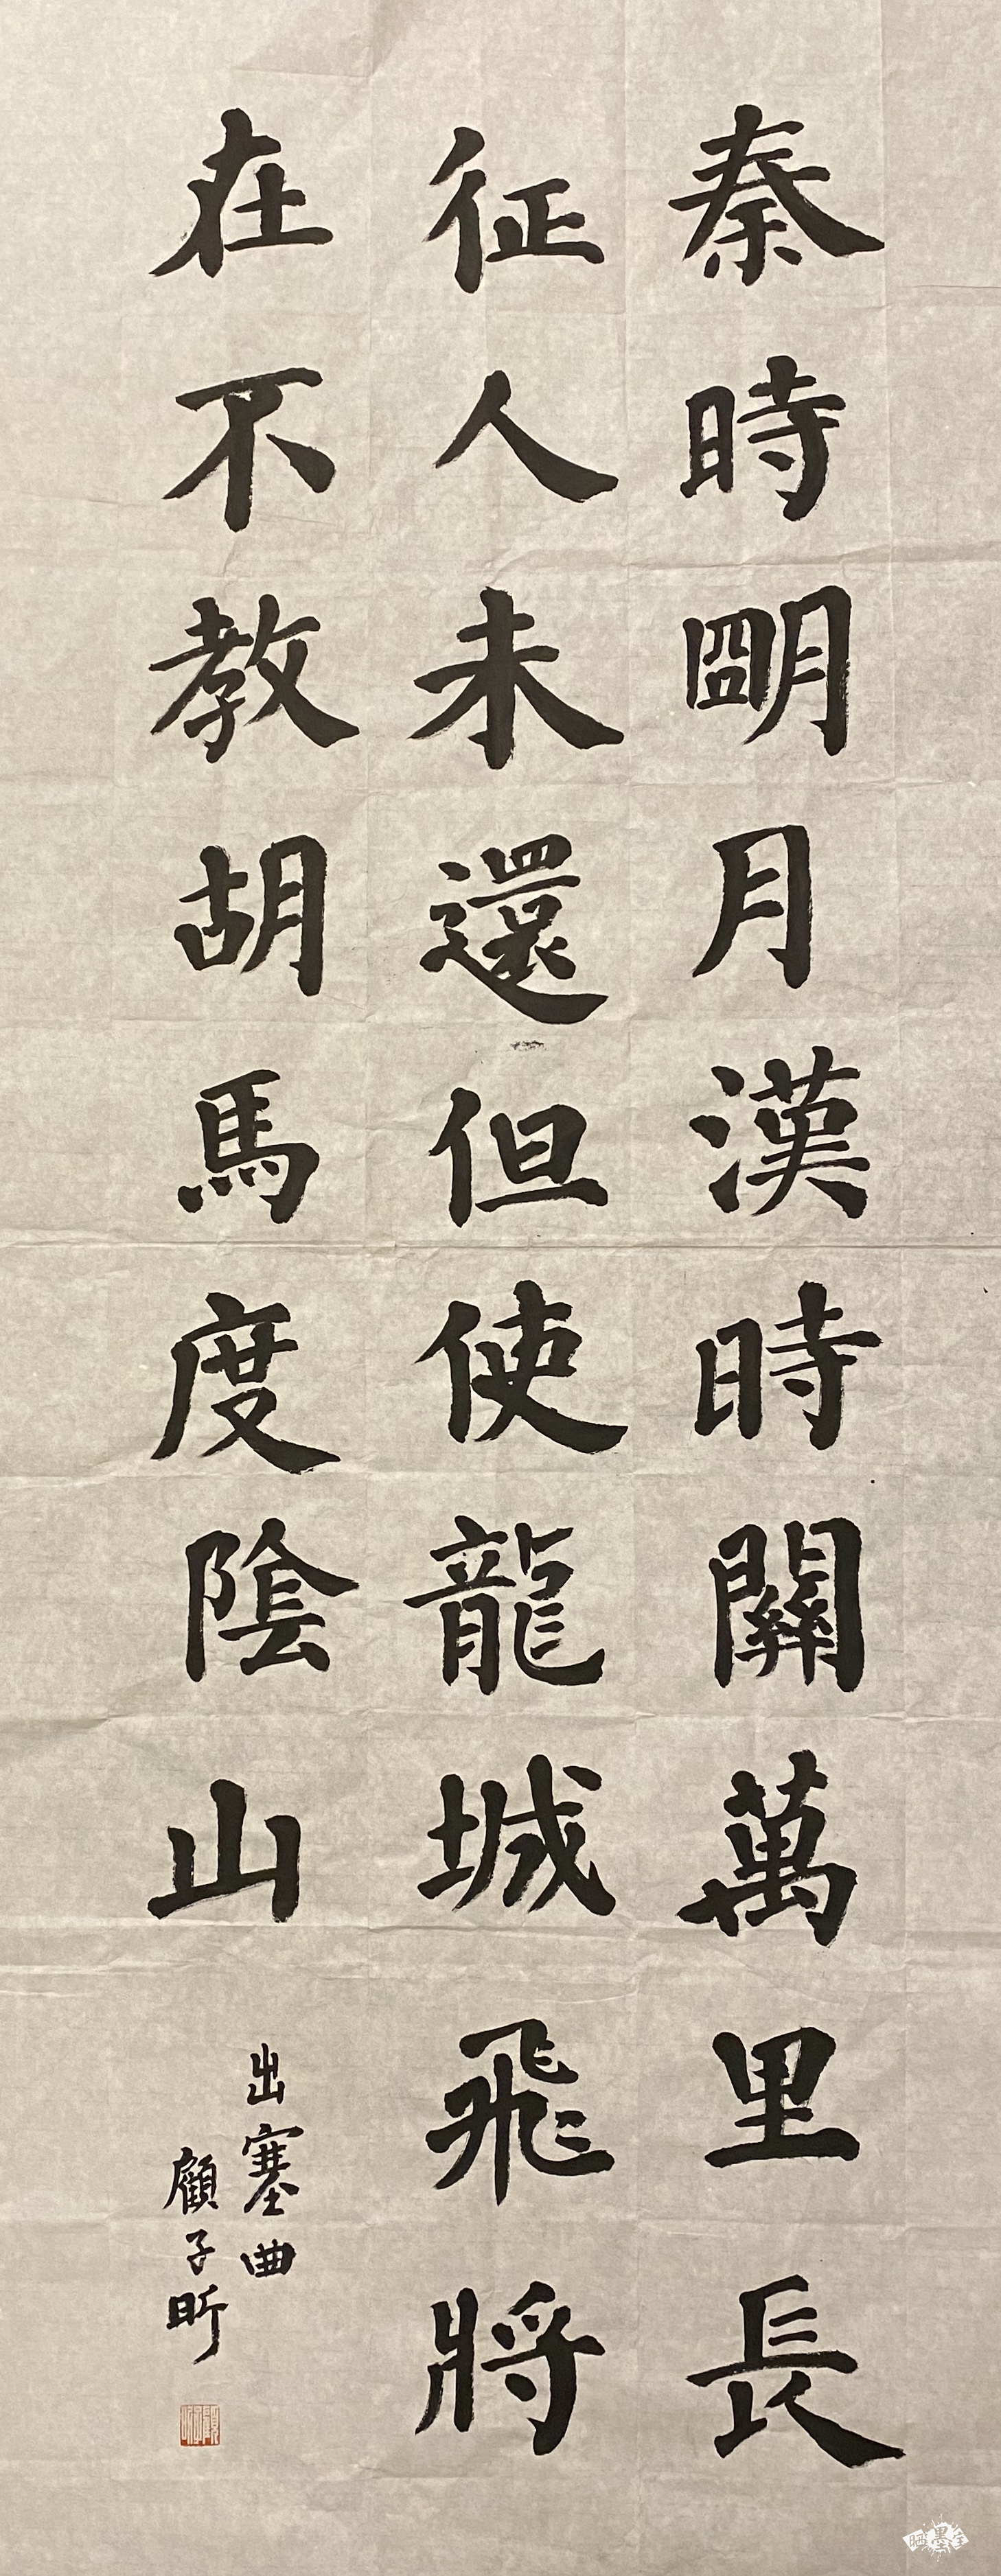 秦時朙月漢時關萬里長
征人未還但使龍城飛將
在不教胡馬度陰山
出塞曲
顧子昕
晒墨宝